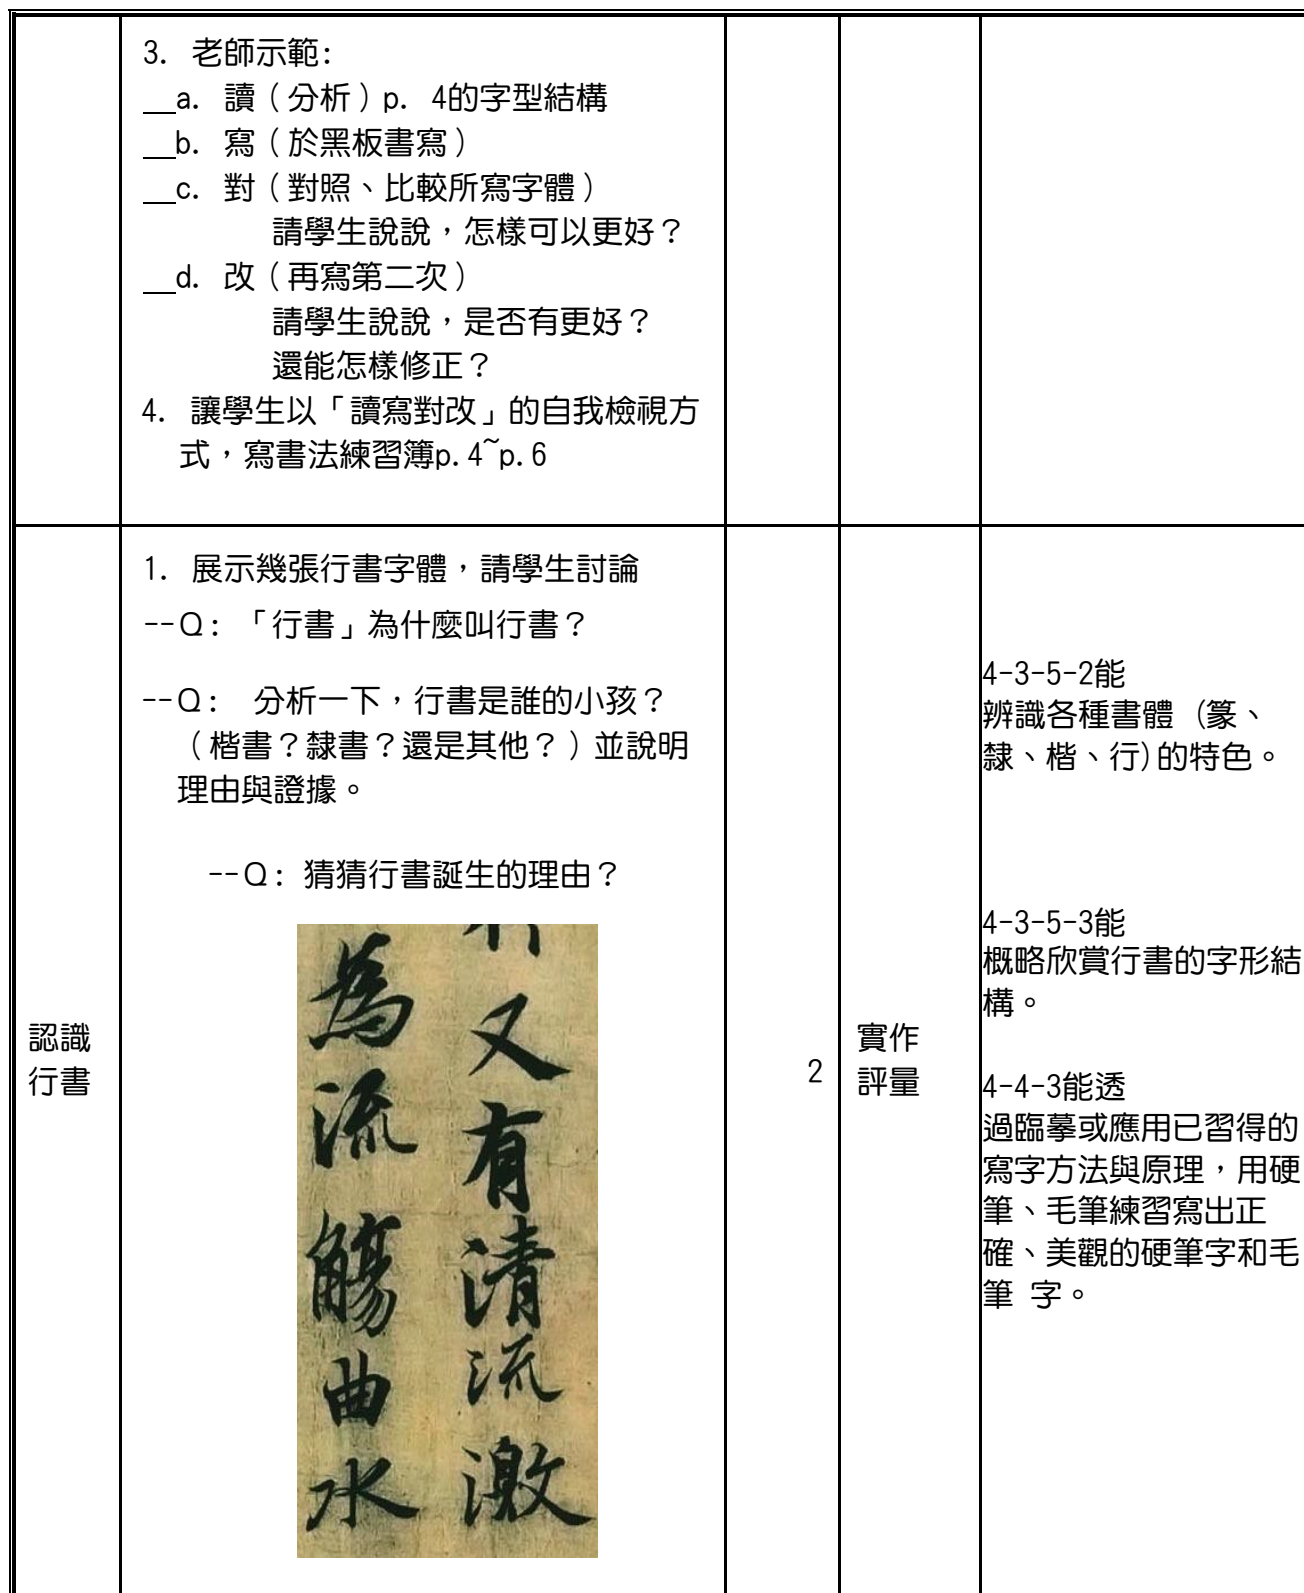 3. 老師示範:
__a. 讀（分析）p. 4的字型結構
__b. 寫（於黑板書寫）
__c. 對（對照、比較所寫字體）
請學生說說，怎樣可以更好？
__d. 改（再寫第二次）
請學生說說，是否有更好？
還能怎樣修正？
4. 讓學生以「讀寫對改」的自我檢視方
式，寫書法練習簿p.4~p.6
認識
行書
1. 展示幾張行書字體，請學生討論
--Q: 「行書」為什麼叫行書？
--Q: 分析一下，行書是誰的小孩？
（楷書？隸書？還是其他？）並說明
理由與證據。
--Q: 猜猜行書誕生的理由？
又有清流激
為流觴曲水
2
實作
評量
4-3-5-2能
辨識各種書體 (篆、
隸、楷、行)的特色。
4-3-5-3能
概略欣賞行書的字形結
構。
4-4-3能透
過臨摹或應用已習得的
寫字方法與原理，用硬
筆、毛筆練習寫出正
確、美觀的硬筆字和毛
筆 字。